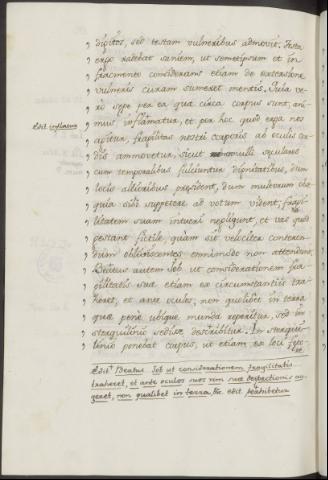 " digitos, sed testam vulneribus admovit. Testa
" ergo radebat saniem, ut semetipsum et in
" fragmento considerans etiam de extersione
" vulneris curam sumeret mentis. Quia ve-
" ro sæpe per ea quæ circa corpus sunt, ani-
edit. inflatur " mus inflammatur, et per hoc quod erga nos
" agitur, fragilitas nostri corporis ab oculis cor-
" dis ammovetur, sicut nonnulli seculares
" cum temporalibus fulciuntur dignitatibus, dum
" locis altioribus præsident, dum multorum obse-
" quia sibi suppetere ad votum vident, fragi-
" litatem suam intueri negligunt, et vas quod
" gestant fictile, quam sit velociter conteren-
" dum obliviscentes, omnimodo non attendunt.
" Beatus autem Job ut considerationem fra-
" gilitatis suæ etiam ex circumstantiis tra-
" heret, et ante oculos, non quolibet in terra
" quæ pene ubique munda reperitur, sed in
" sterquilinio sedisse describitur. In sterqui-
" linio ponebat corpus, ut etiam ex loci feto-
re
edit. Beatus Job ut considerationem fragilitatis
traheret, et ante oculos suos rem suæ despectionis au-
geret, non qualibet in terra, &c. edit. perhibetur